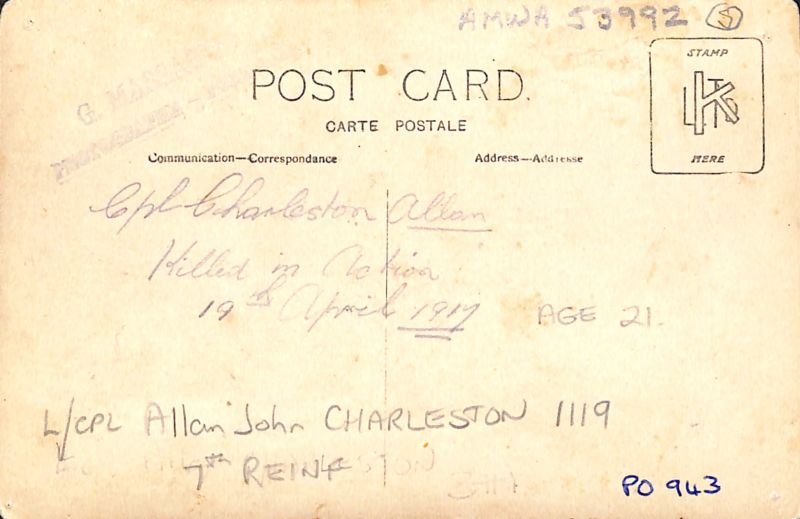 AMWA 53992 (5)
G. MASSA
STAMP
POST CARD.
CARTE POSTALE
HERE
Communication—Correspondance
Address—Addresse
Cpl Charleston Allan
Killed in Action
19th April 1917 AGE 21.
L/CPL Allan John CHARLESTON 1119
7TH REINF
PO 943